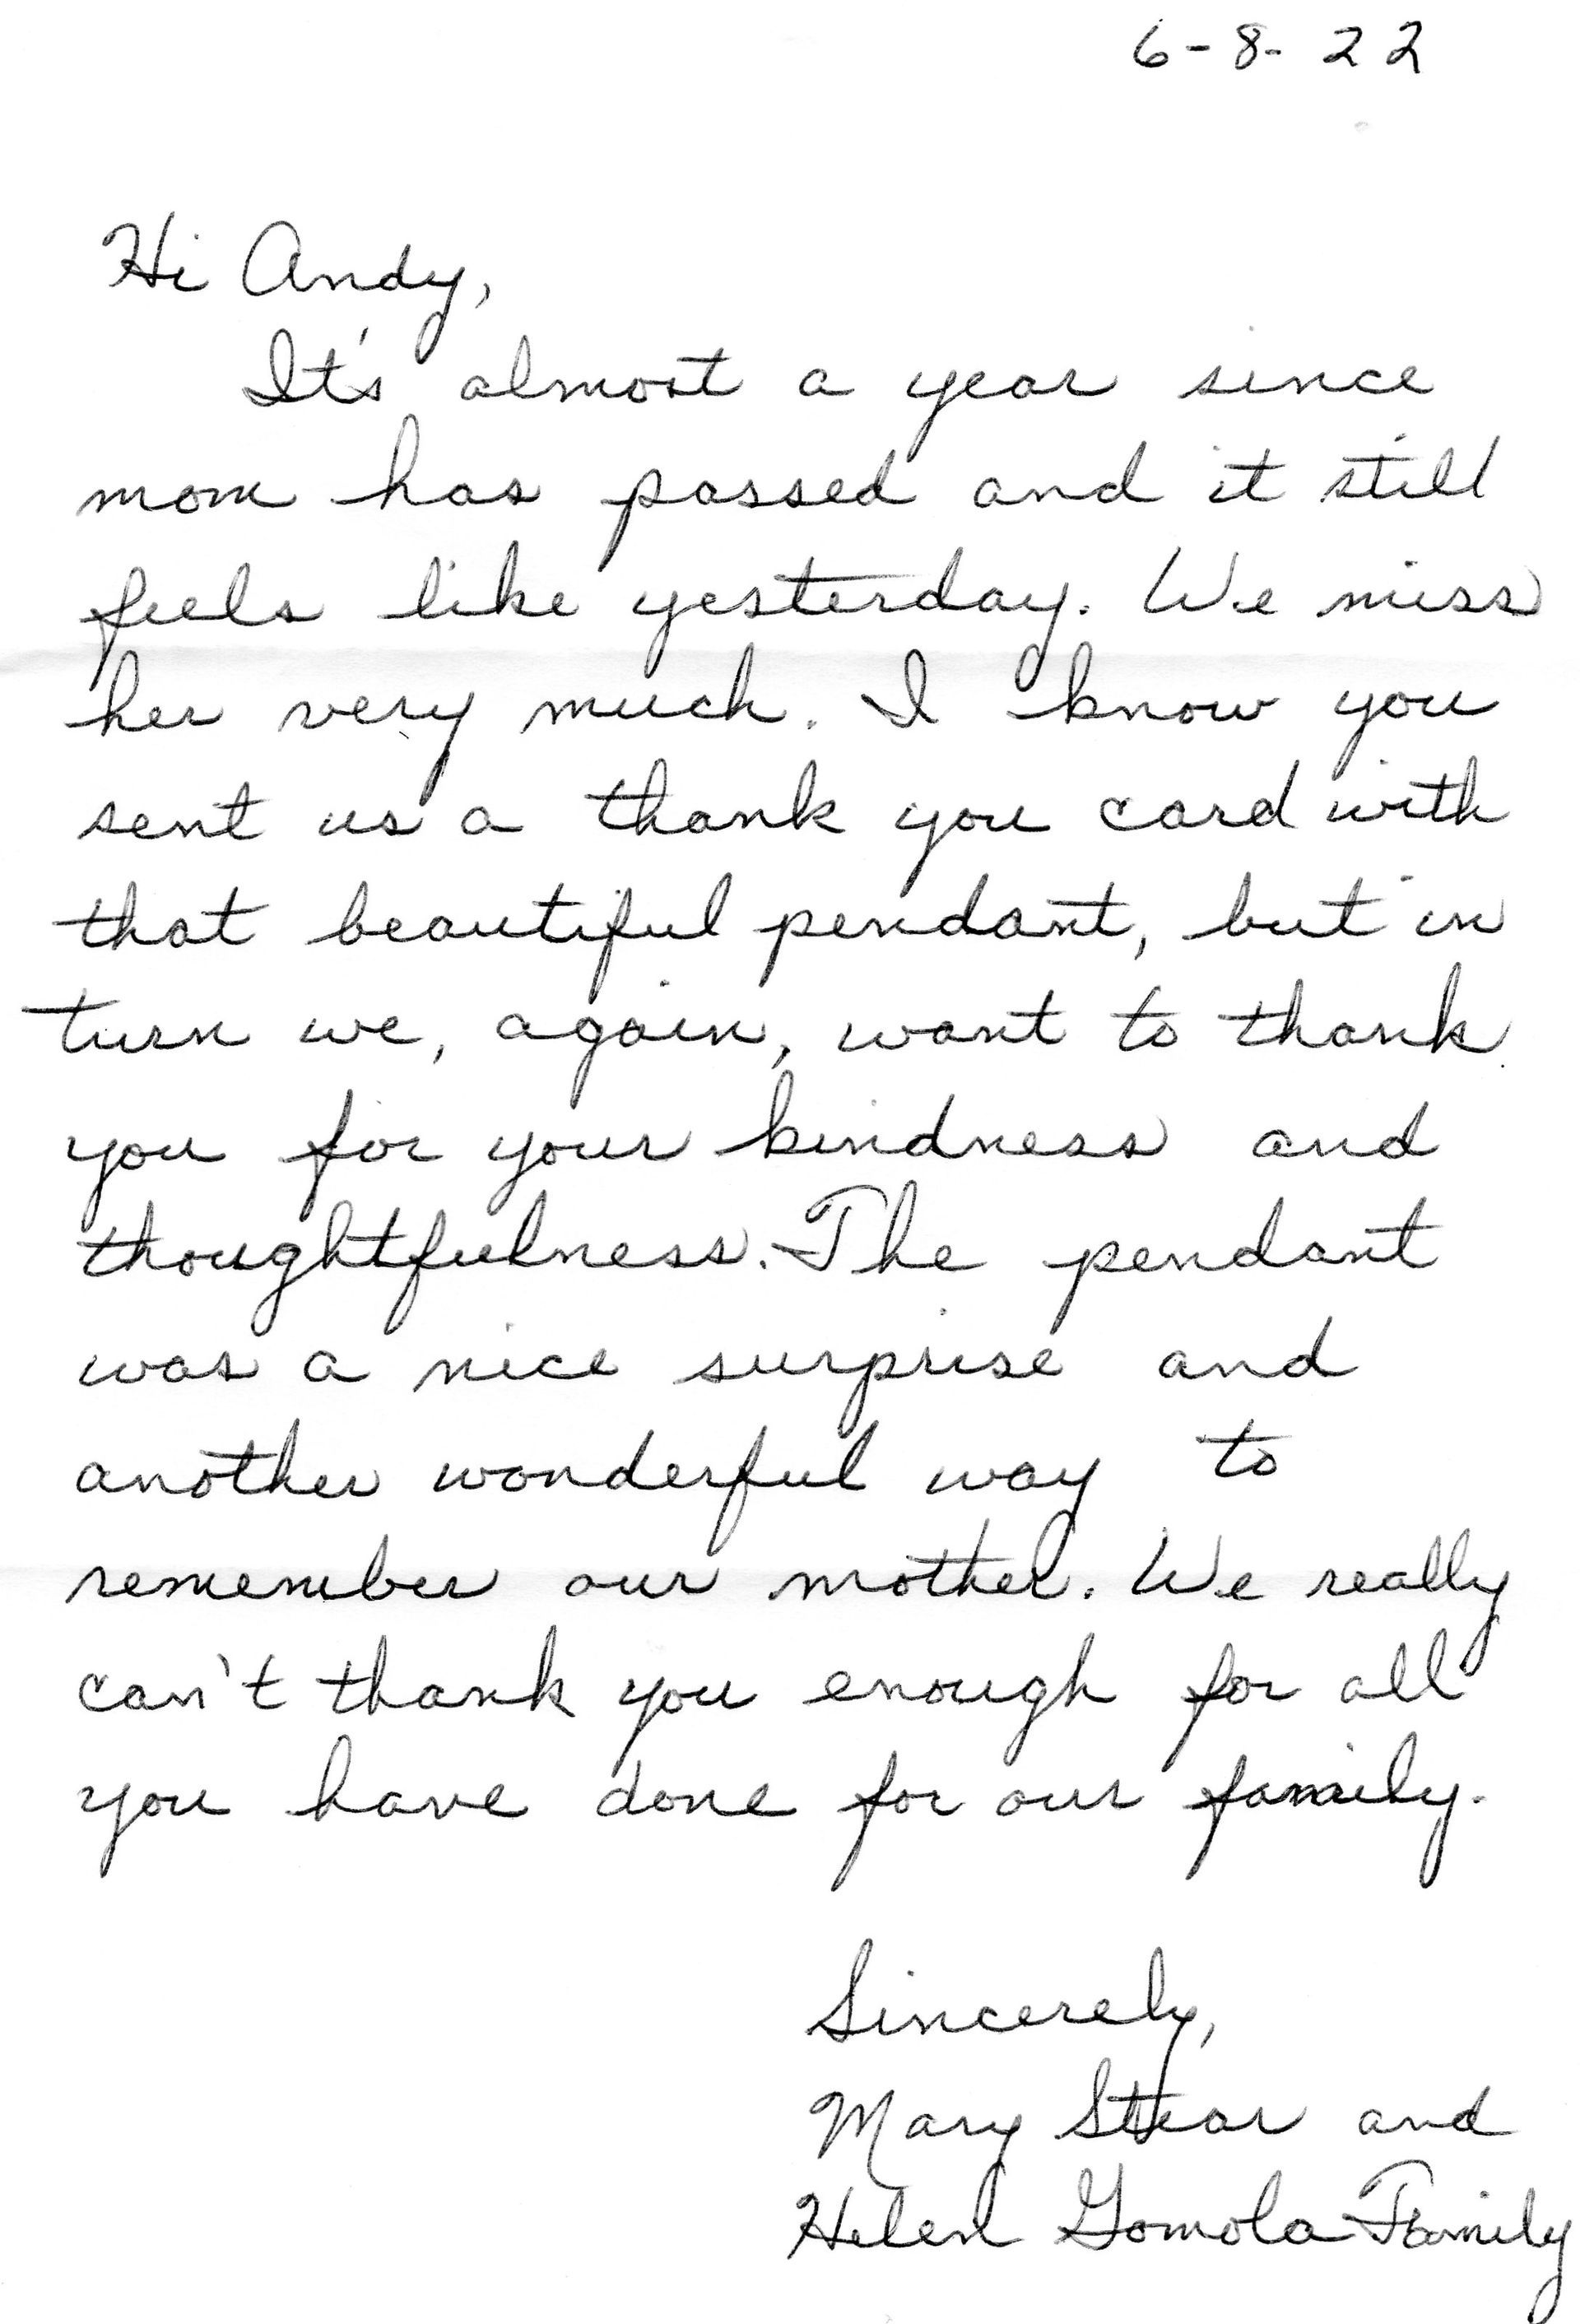 6-8-22
Hi Andy,
It's almost a year since
mom has passed and it still
feels like yesterday. We miss
her very much. I know you
sent us a thank you card with
that beautiful pendant, but in
turn we, again, want to thank
you for your kindness and
thoughtfulness. The pendant
was a nice surprise and
another wonderful way to
remember our mother. We really
can't thank you enough for all
you have done for our family.
Sincerely,
Mary Stear and
Helen Gomola Family